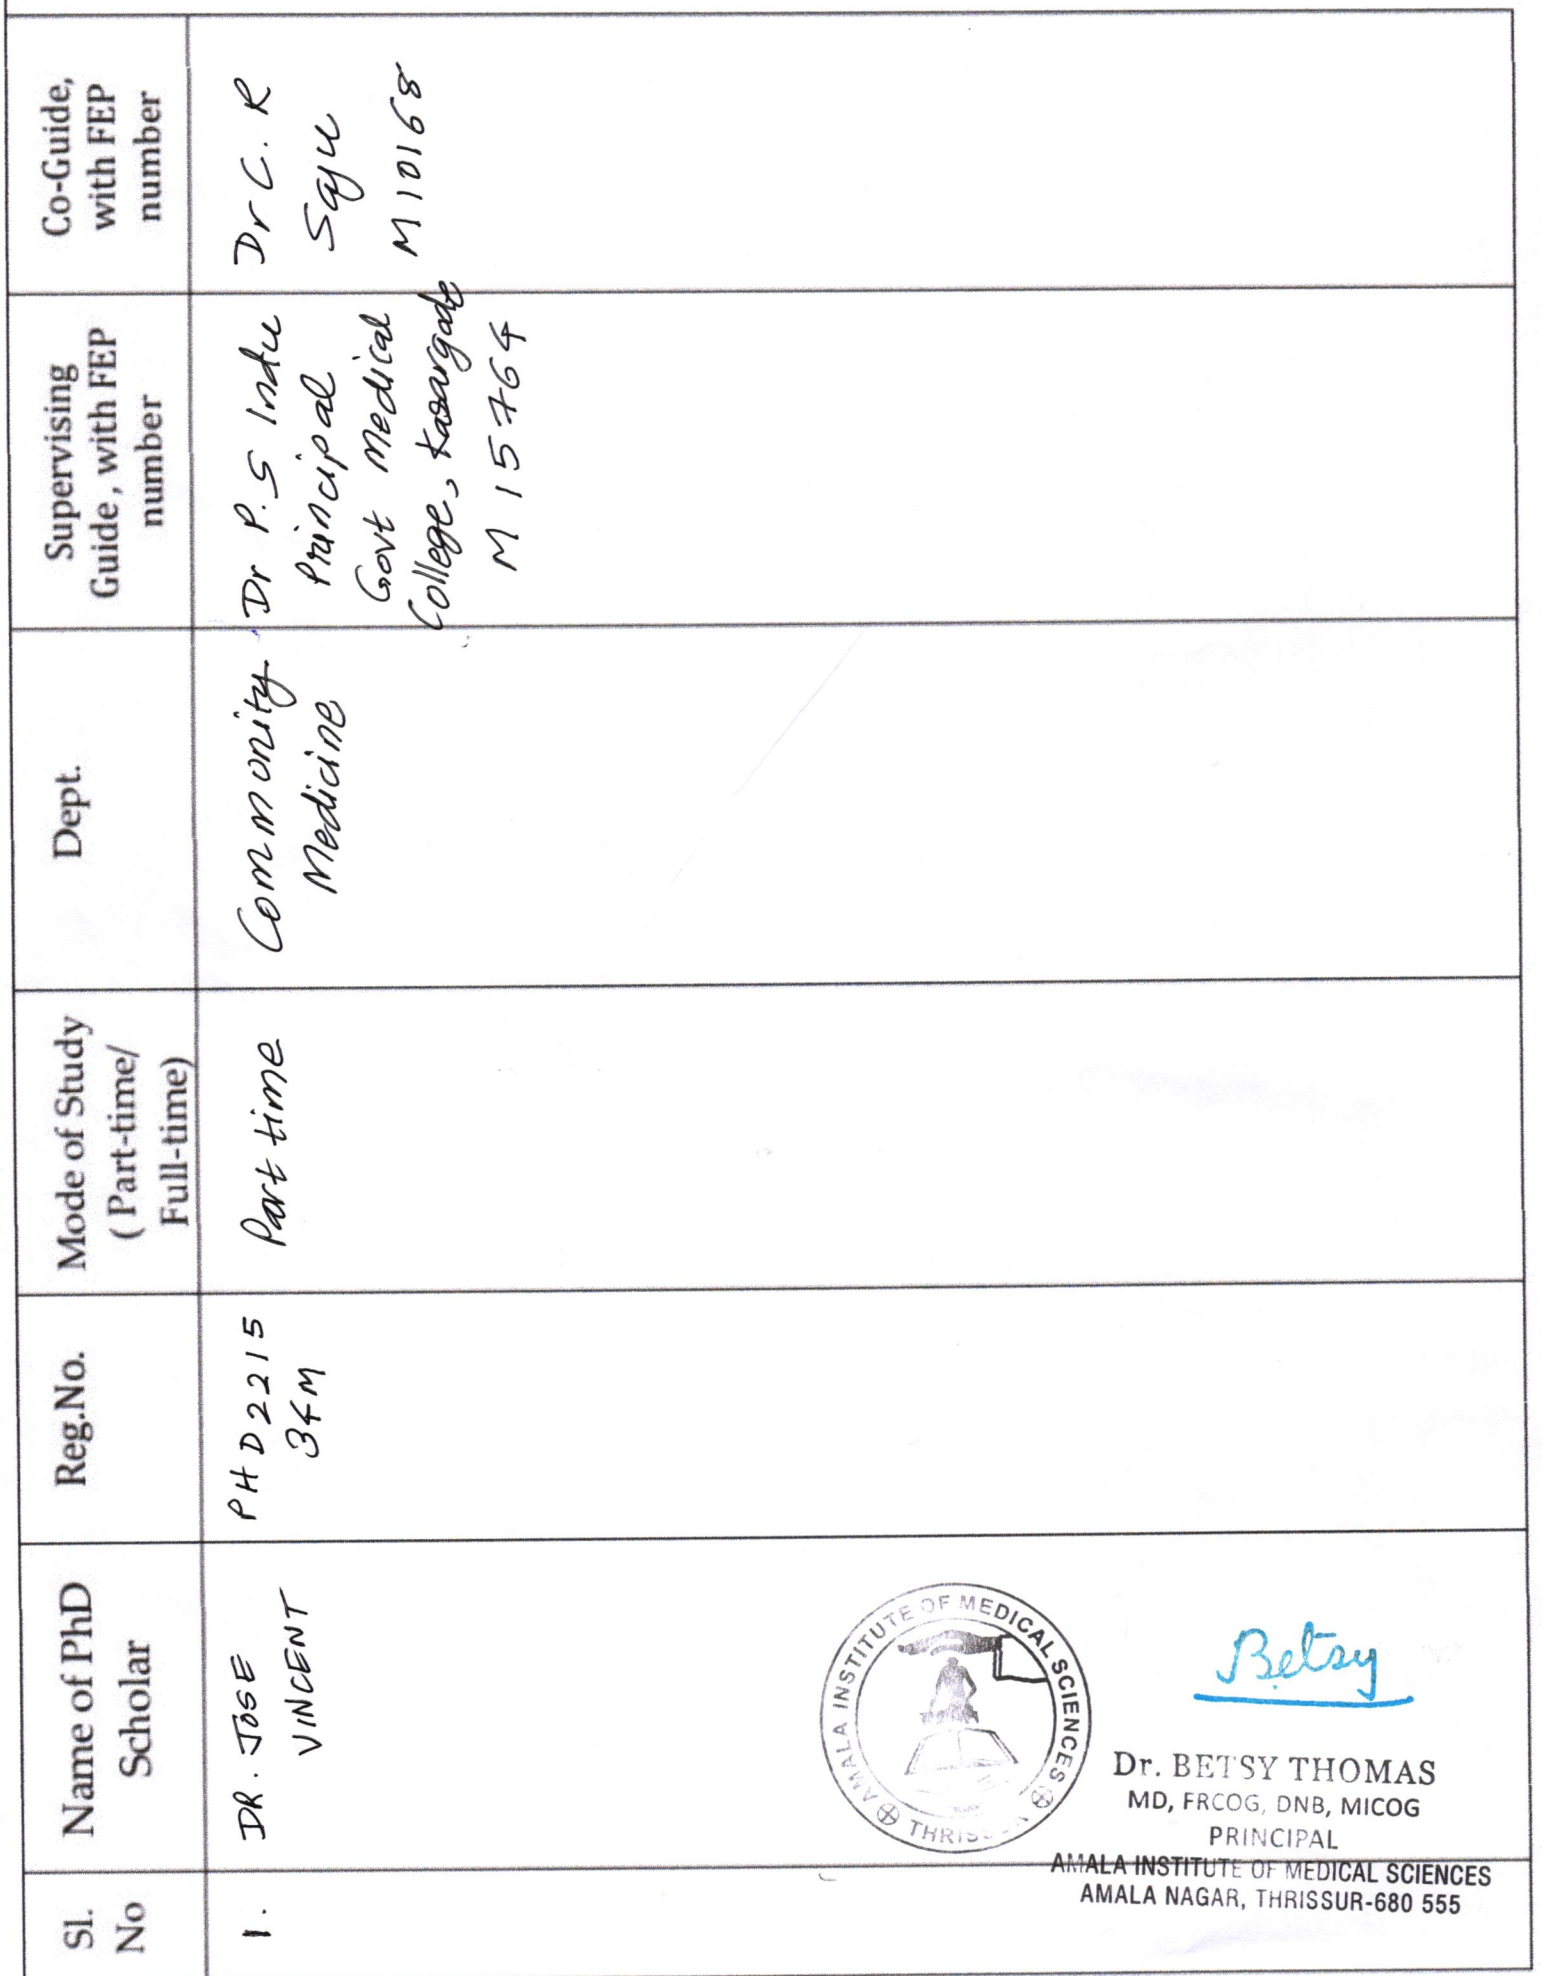 Sl.
No
Name of PhD
Scholar
Reg.No.
Mode of Study
( Part-time/
Full-time)
Dept.
Supervising
Guide , with FEP
number
Co-Guide,
with FEP
number
1.
DR. JOSE
VINCENT
PHD2215
34M
Part time
Community
Medicine
Dr P.S Indu
Principal
Govt Medical
College, Kasargode
M 15764
Dr C. R
Saju
M10168
AMALA INSTITUTE OF MEDICAL SCIENCES
Betsy
Dr. BETSY THOMAS
MD, FRCOG, DNB, MICOG
PRINCIPAL
AMALA INSTITUTE OF MEDICAL SCIENCES
AMALA NAGAR, THRISSUR-680 555